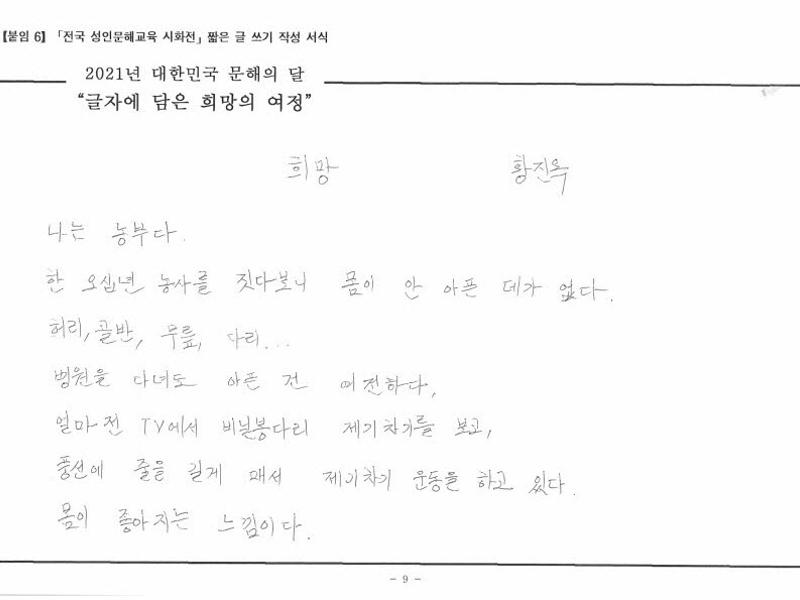 【붙임 6】 「전국 성인문해교육 시화전」 짧은 글 쓰기 작성 서식
2021년 대한민국 문해의 달
“글자에 담은 희망의 여정”
희망 황진옥
나는 농부다.
한 오십년 농사를 짓다보니 몸이 안 아픈 데가 없다.
허리, 골반, 무릎, 다리...
병원을 다녀도 아픈 건 여전하다,
얼마 전 TV에서 비닐봉다리 제기차기를 보고,
풍선에 줄을 길게 매서 제기차기 운동을 하고 있다.
몸이 좋아지는 느낌이다.
- 9 -